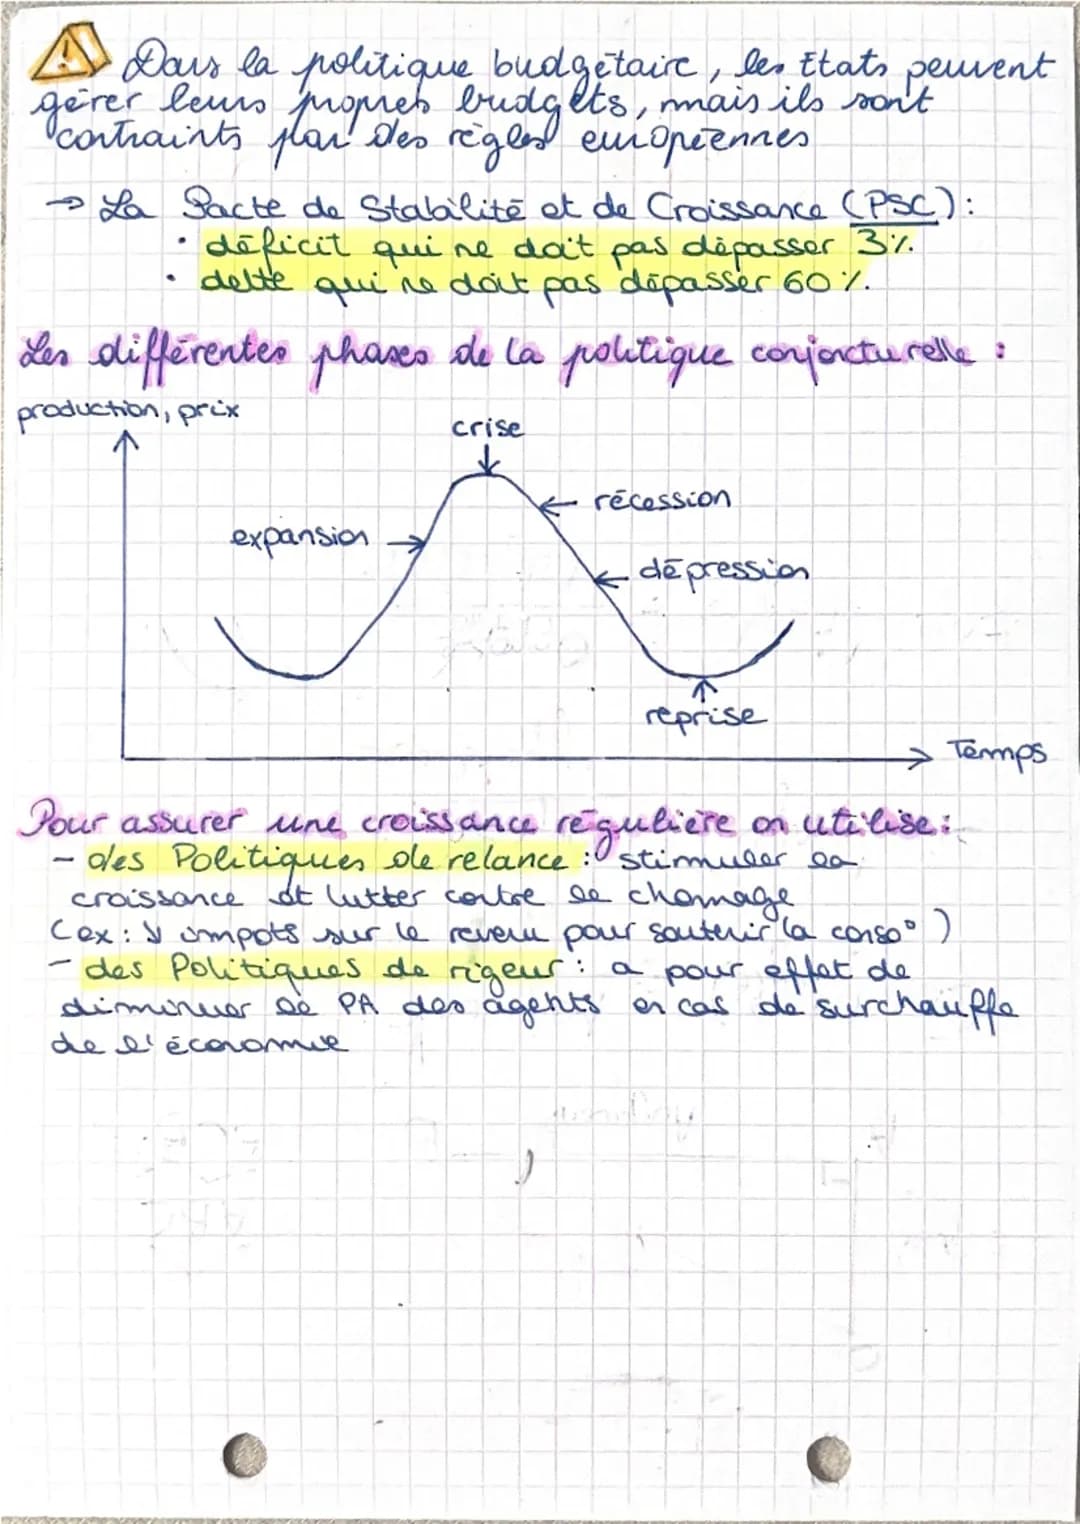 Dans la politique budgétaire, les États peuvent
gérer leurs propres budgets, mais ils sont
contraints par des règles européennes
→ La Pacte de Stabilité et de Croissance (PSC) :
• déficit qui ne doit pas dépasser 3%.
• dette qui ne doit pas dépasser 60%.
Les différentes phases de la politique conjoncturelle :
production, prix
crise
récession
expansion
dépression
reprise
Temps
Pour assurer une croissance régulière on utilise :
- des Politiques de relance : stimuler la
croissance et lutter contre le chomage
(ex : ↘ impots sur le revenu pour soutenir la conso°)
- des Politiques de rigeur : a pour effet de
diminuer le PA des agents en cas de surchauffe
de l'économie